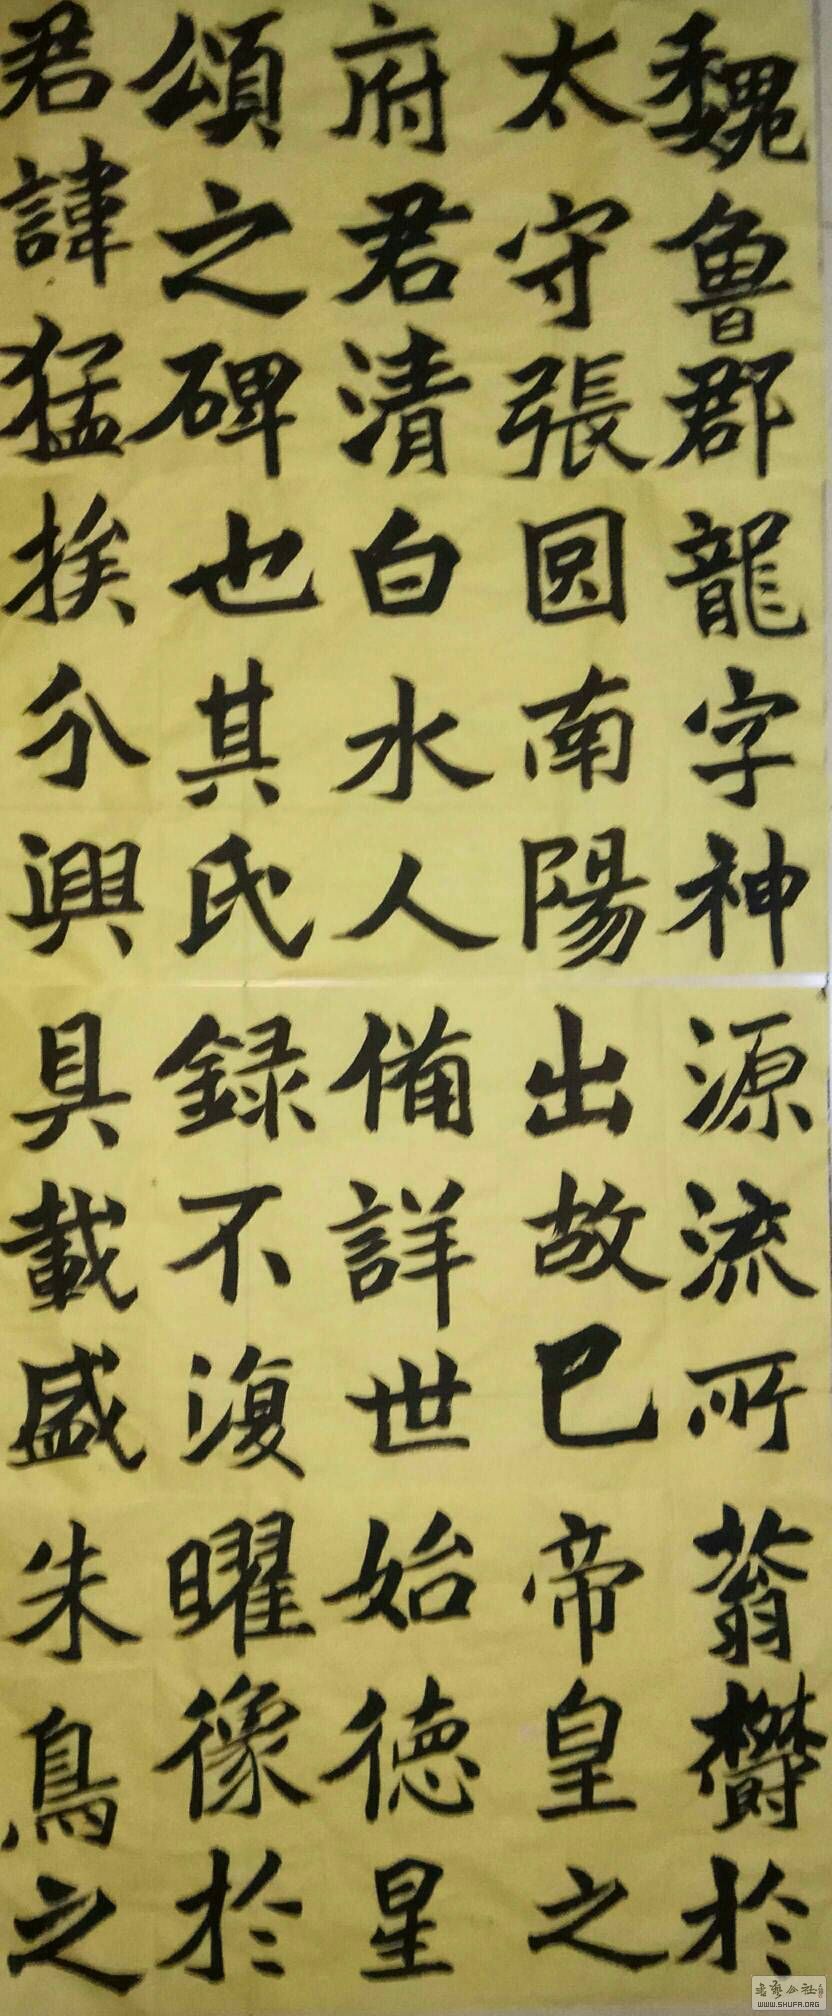 魏魯郡龍字神源流所蓊欝於
太守張囧南陽出故已帝皇之
府君清白水人備詳世始德星
頌之碑也其氏録不復曜像於
君諱猛挨分興具載盛朱鳥之
書藝公社
WWW.SHUFA.ORG